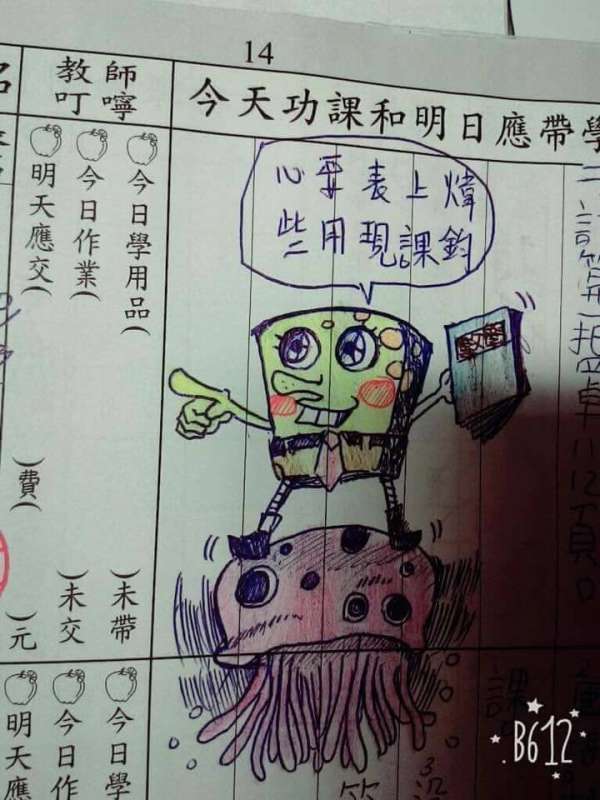 14
今天功課和明日應帶學
教師
叮嚀
煒鈞
上課
表現
要用
心些
今日學用品( )未帶
今日作業( )未交
明天應交( )費( )元
今日學
今日作
明天應
B612